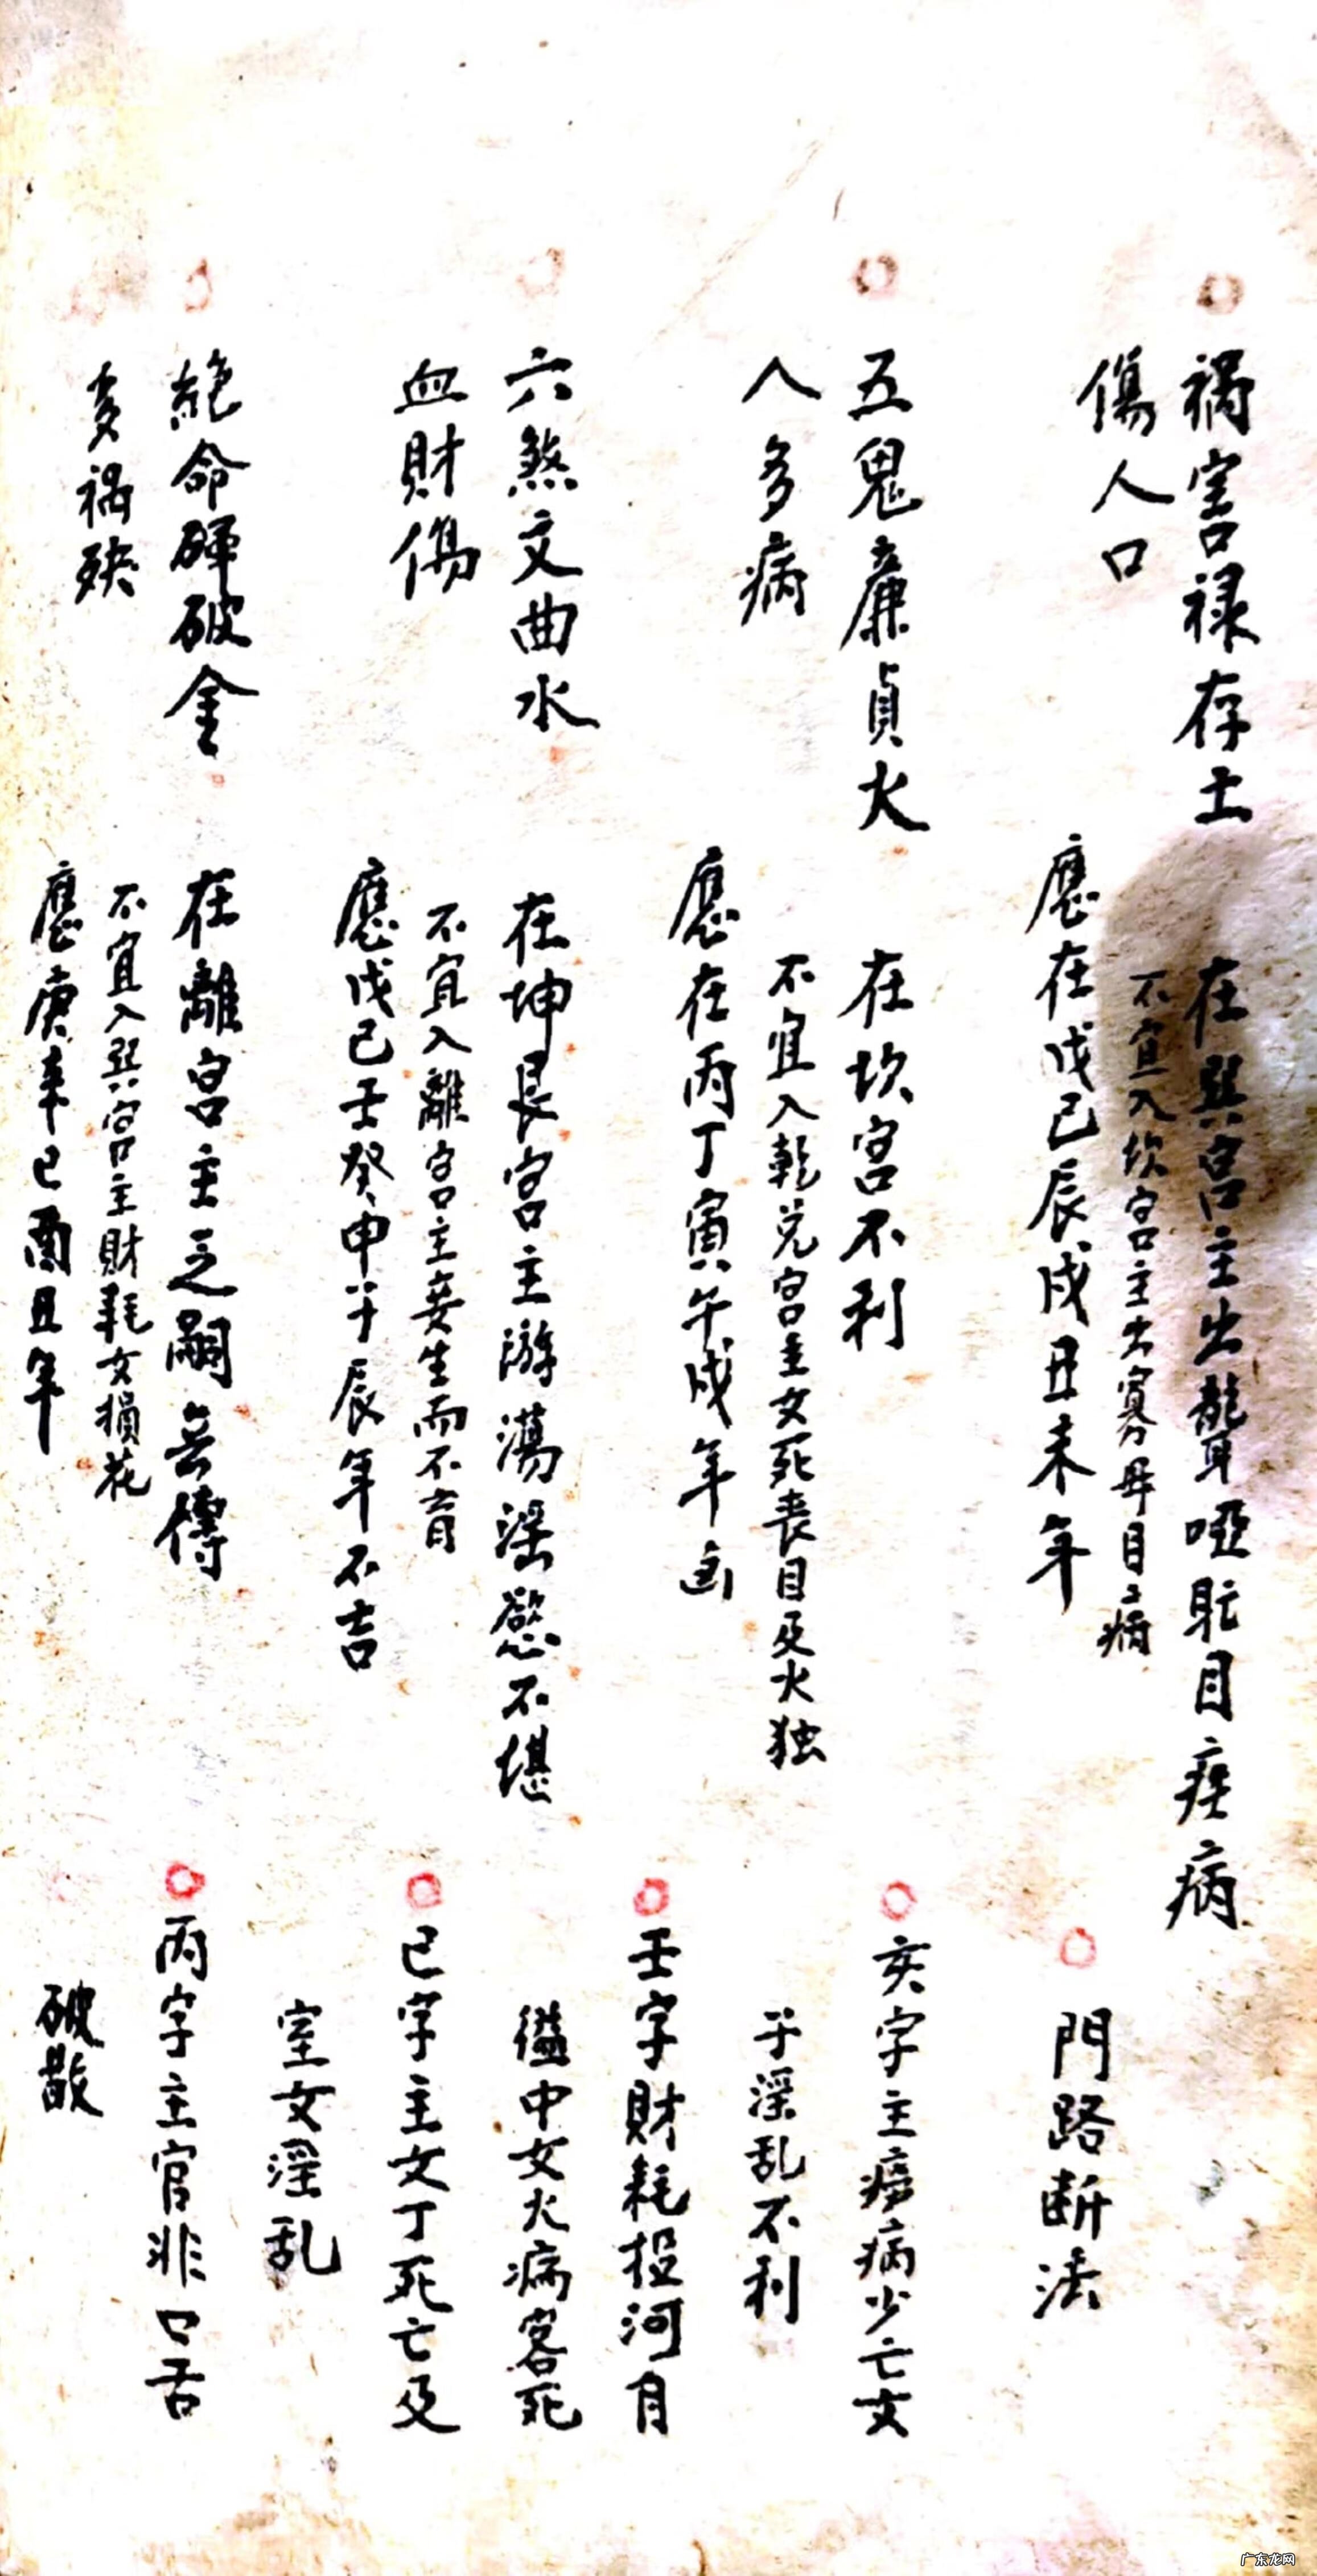 禍害禄存土
傷人口
在巽宫主出聾啞眍目疾病
不宜入坎宫主出寡母目疒病
應在戊己辰戌丑未年
五鬼廉貞火
人多病
在坎宫不利
不宜入乾兑宫主女死丧目及火独
應在丙丁寅午戌年凶
六煞文曲水
血財傷
在坤艮宫主游蕩淫慾不堪
不宜入離宫主妾生而不育
應戊己壬癸申子辰年不吉
絕命破金
多禍殃
在離宫主乏嗣無傳
不宜入巽宫主財耗女損花
應庚辛巳酉丑年
門路断法
亥字主痨病少亡女
子淫乱不利
壬字財耗投河自
縊中女火痨客死
巳字主女丁死亡及
室女淫乱
丙字主官非口舌
破散
广东龙网